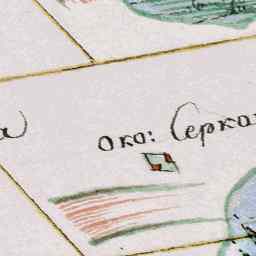 око: Серка